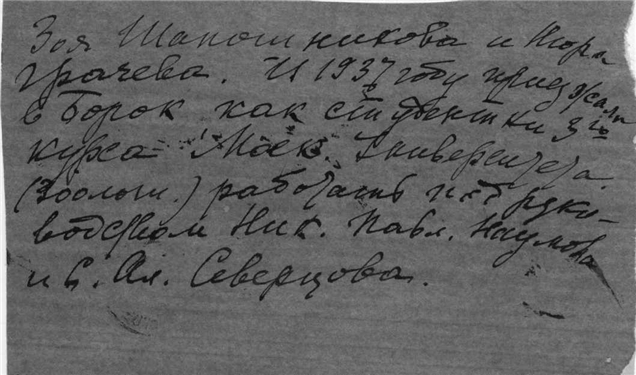 Зоя Шапошникова и Нюра
Грачева. В 1937 году приезжали
в Борок как студентки 3го
курса Моск. Университета.
(Зоолог.) работать под руко-
водством Ник. Павл. Наумова
и С. Ал. Северцова.